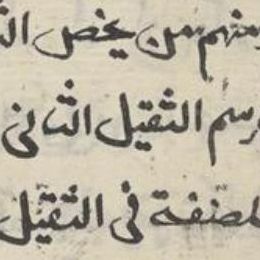 ومنهم من يخص الث
ورسم الثقيل الثانى
المصنفة فى الثقيل